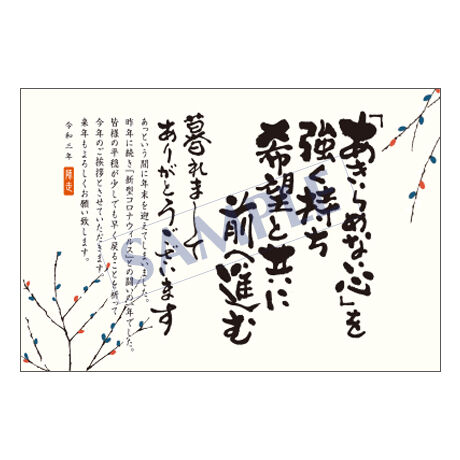 「あきらめない心」を
強く持ち
希望と共に
前へ進む
暮れまして
ありがとうございます
あっという間に年末を迎えてしまいました。
昨年に続き「新型コロナウィルス」との闘いの一年でした。
皆様の平穏が少しでも早く戻ることを祈って
今年のご挨拶とさせていただきます。
来年もよろしくお願い致します。
令和三年 師走
SAMPLE